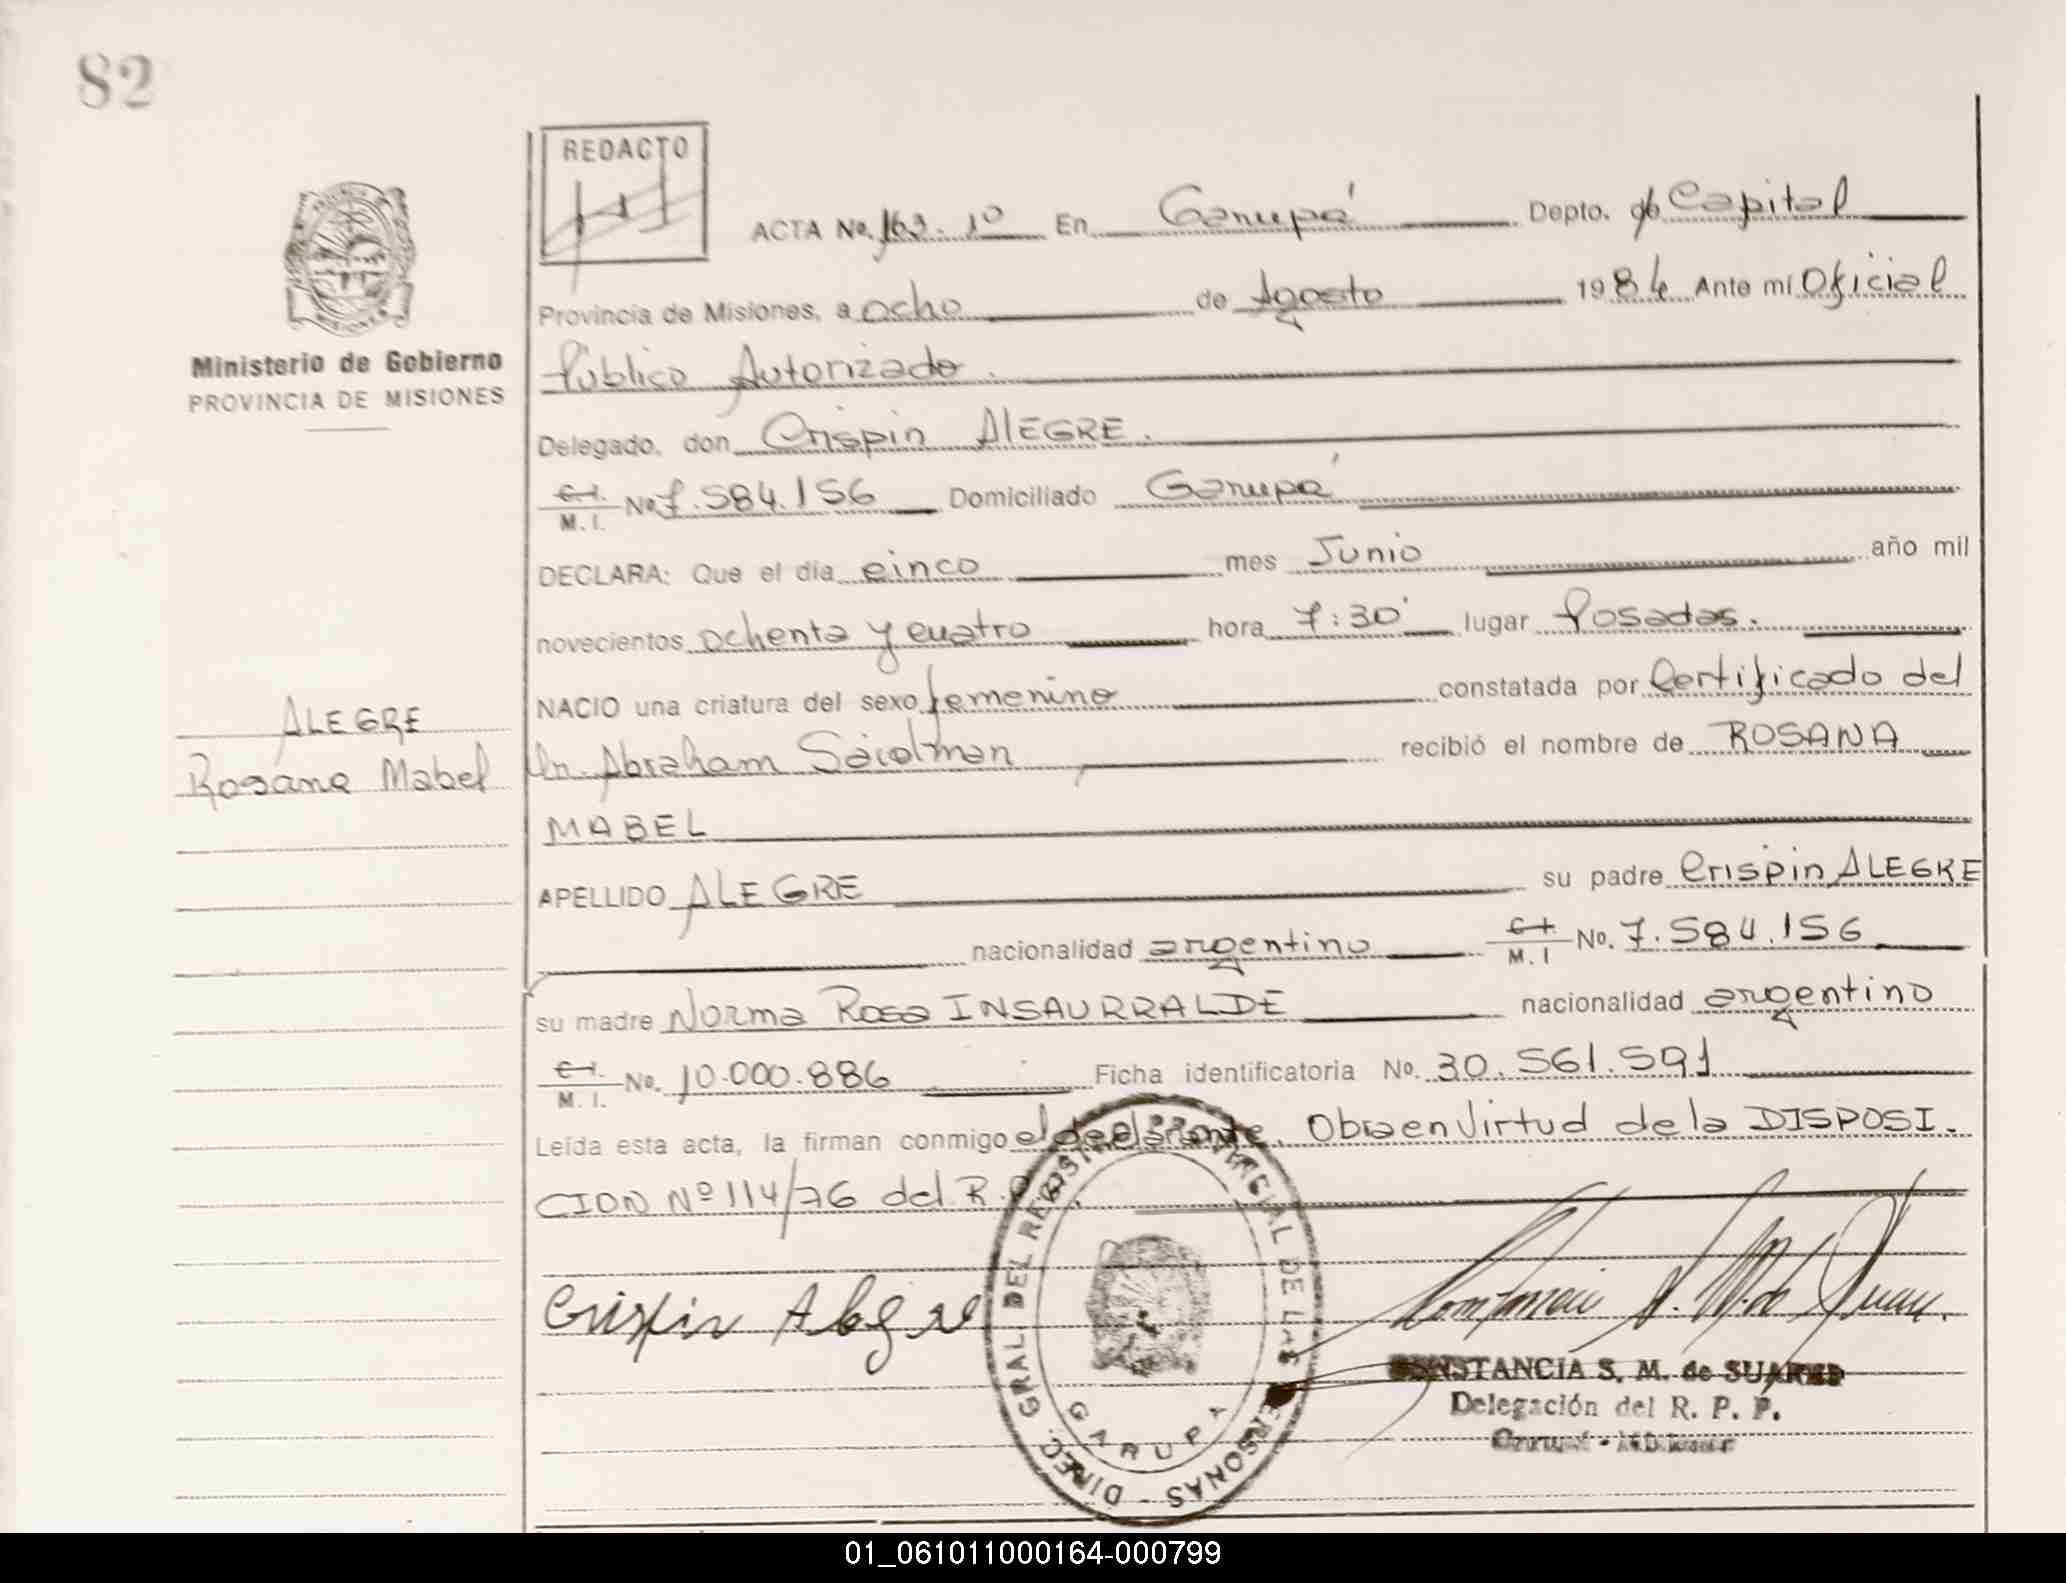 82
REDACTO
ACTA No. 163. 1º En Garupá Depto. Capital
Provincia de Misiones, a ocho de Agosto 1984 Ante mí Oficial
Ministerio de Gobierno
PROVINCIA DE MISIONES
Público Autorizado.
Delegado, don Crispin ALEGRE.
C.I. M.I. No 7.584.156 Domiciliado Garupá
DECLARA: Que el día cinco mes Junio año mil
novecientos ochenta y cuatro hora 7:30' lugar Posadas.
NACIO una criatura del sexo femenino constatada por Certificado del
ALEGRE
Rosana Mabel
Dr. Abraham recibió el nombre de ROSANA
MABEL
APELLIDO ALEGRE su padre Crispin ALEGRE
nacionalidad argentino C.I. M.I No. 7.584.156
su madre Norma Rosa INSAURRALDE nacionalidad argentino
C.I. M.I. No. 10.000.886 Ficha identificatoria No. 30.561.591
Leída esta acta, la firman conmigo el declarante. Obra en Virtud de la DISPOSI.
CION Nº 114/76 del R.
Crispin Alegre
DIREC. GRAL. DEL REGISTRO PROVINCIAL DE LAS PERSONAS -
GARUPA
CONSTANCIA S. M. de SUAREZ
Delegación del R. P. P.
01_061011000164-000799